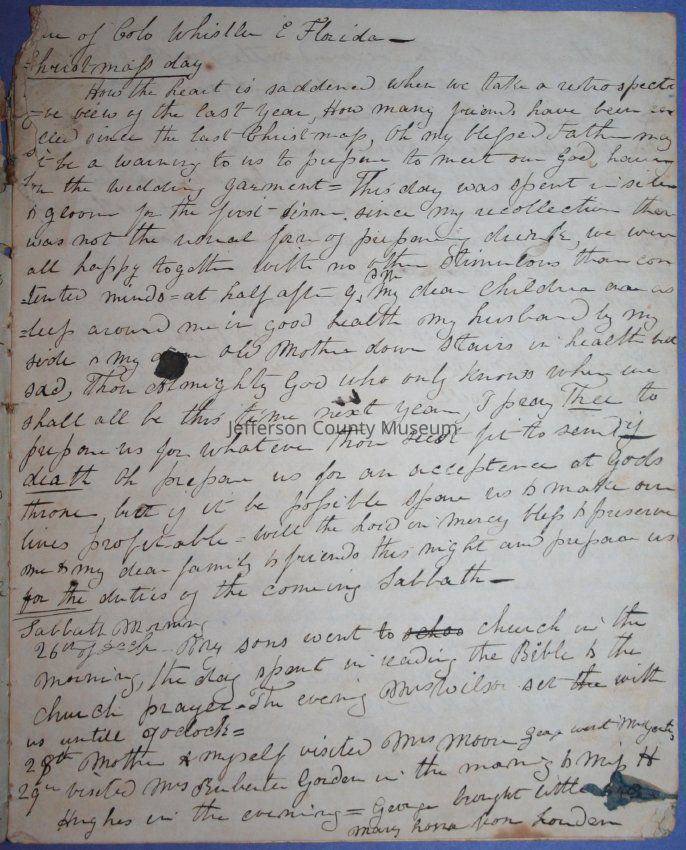 of Colo Whistler E Florida—
Christmass day
How the heart is saddened when we take a retrospecti
=ve view of the last year, How many friends have been
since the last Christmass, Oh my blessed Father may
it be a warning to us to prepare to meet our God having
on the wedding garment = This day was spent in silen
& gloom for the first time since my recollection there
was not the usual fare of prepareing drink, we were
all happy together with no other stimulous than con
=tented minds = at half after 9, my dear children are as
=leep around me in good health my husband by my
side & my old Mother down stairs in health but
sad, Thou Almighty God who only knows where we
shall all be this time next year, I pray Thee to
Jefferson County Museum
prepare us for whatever Thou seest fit to send if
death Oh prepare us for an acceptence at Gods
throne, but if it be possible spare us to make our
lives profitable = will the Lord in mercy bless & preserve
me & my dear family & friends this night and prepare us
for the duties of the comeing Sabbath—
Sabbath Morning
26th of Decr My sons went to church in the
morning, the day spent in reading the Bible & the
church prayer = The evening Mrs Wilson set with
us untill 9 oclock =
28th Mother & myself visited Mrs Moore
29th visited Mrs Gorden in the morning & Miss H
Hughes in the evening = George brought little
mary from Louden